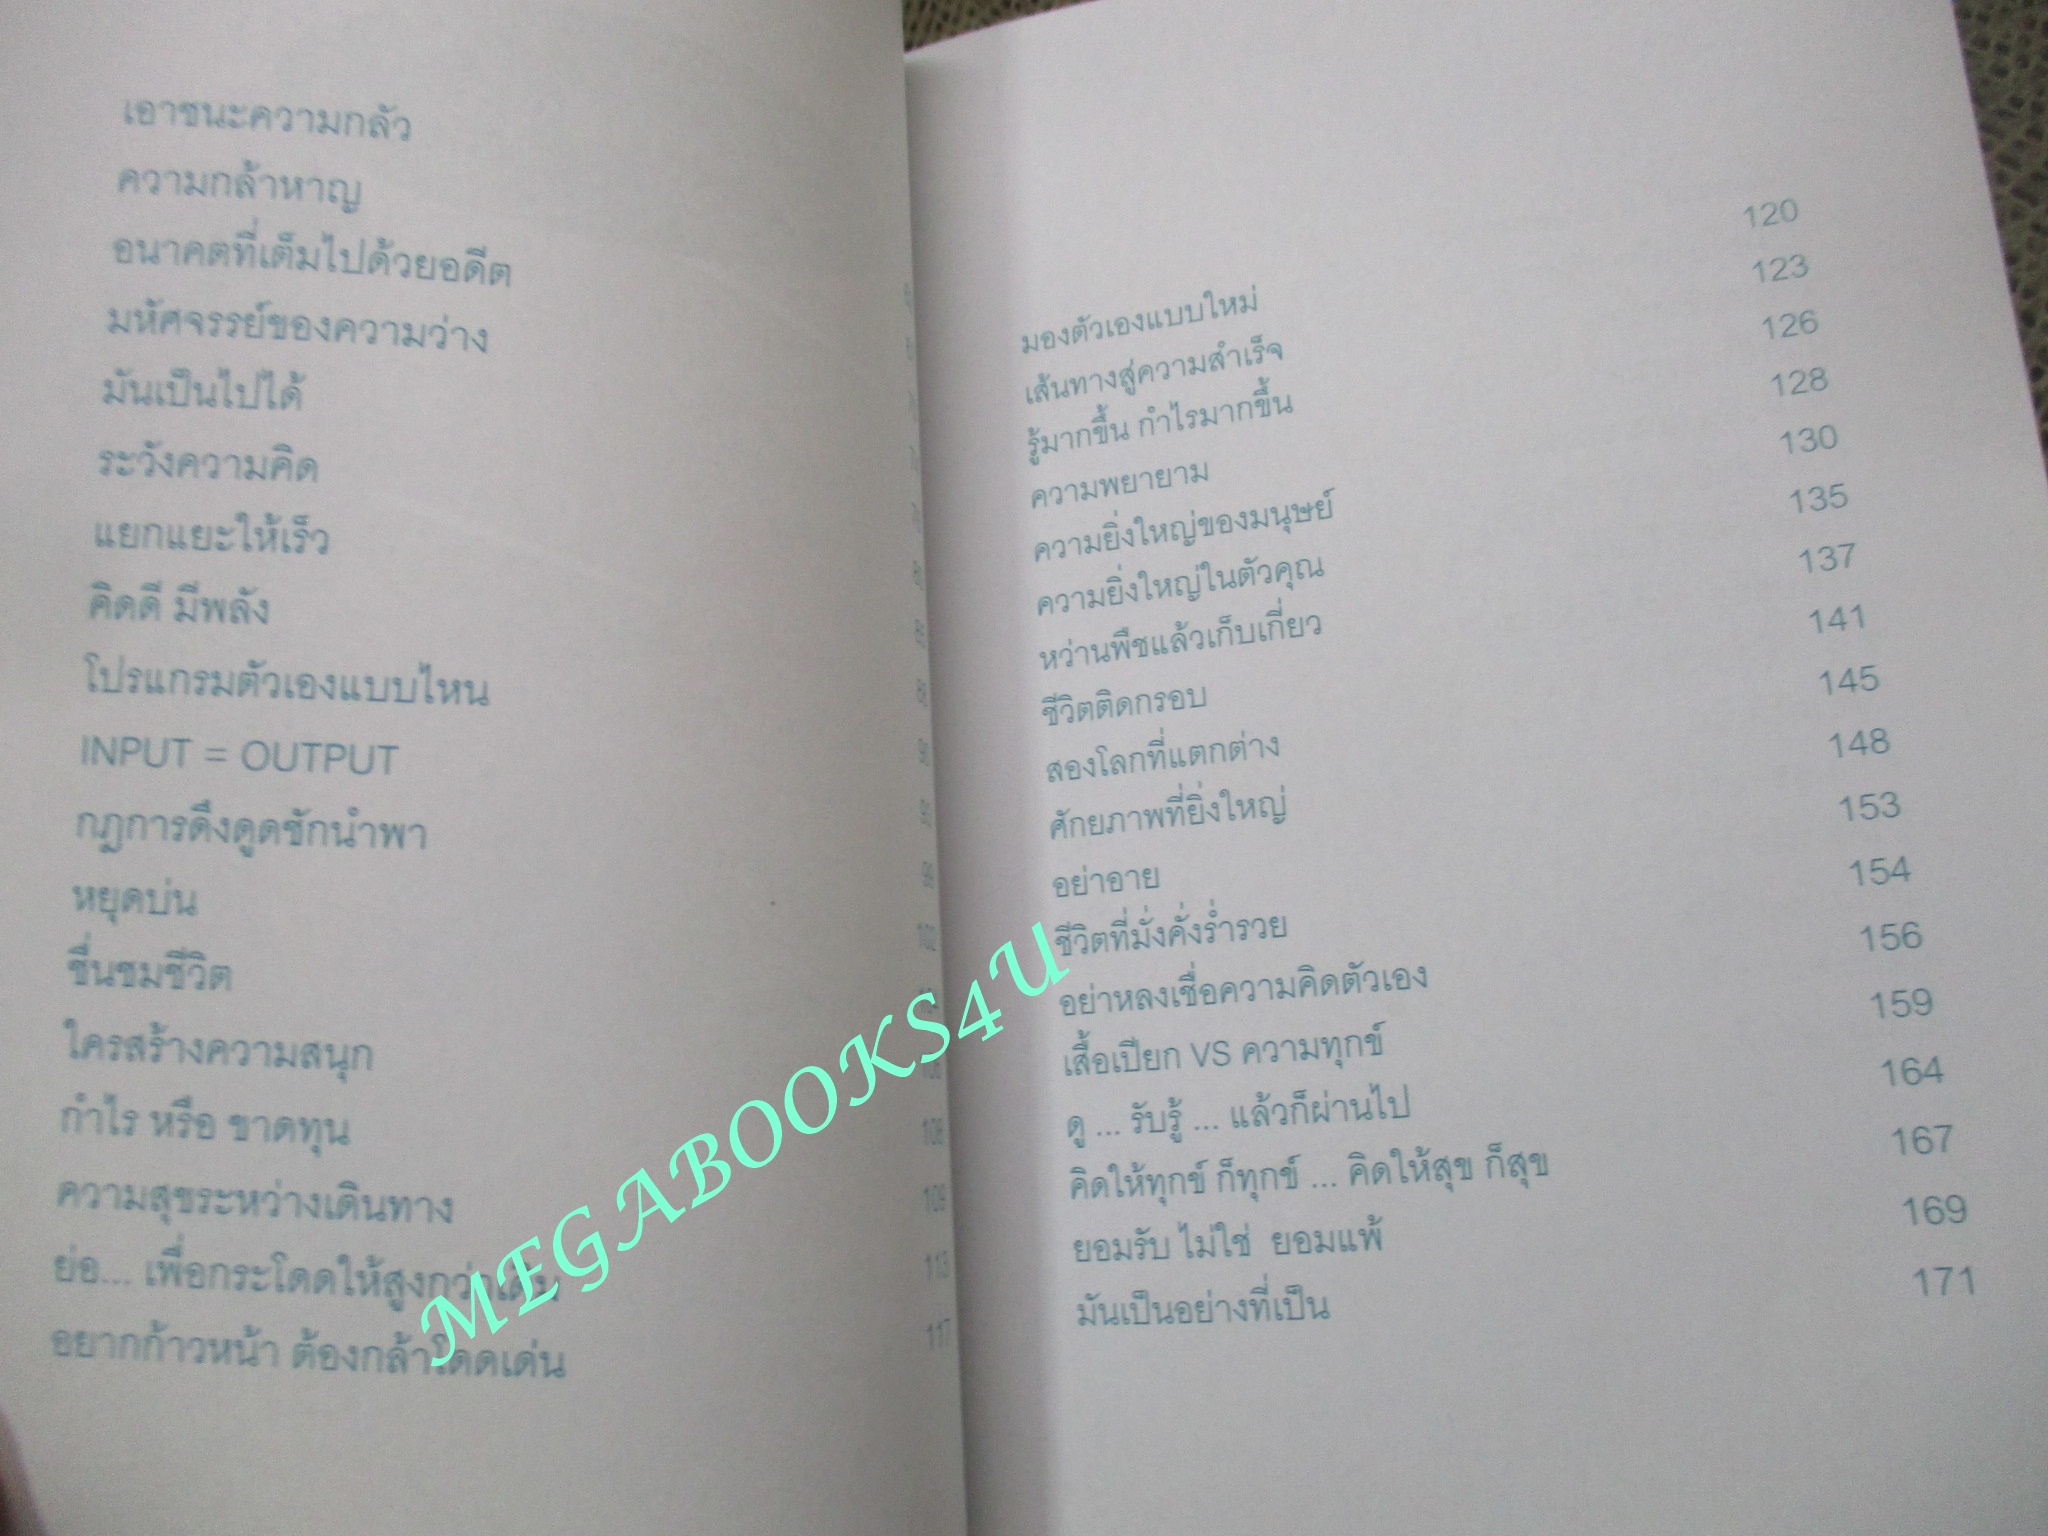 เอาชนะความกลัว
ความกล้าหาญ
อนาคตที่เต็มไปด้วยอดีต
มหัศจรรย์ของความว่าง
มันเป็นไปได้
ระวังความคิด
แยกแยะให้เร็ว
คิดดี มีพลัง
โปรแกรมตัวเองแบบไหน
INPUT = OUTPUT 90
กฎการดึงดูดชักนำพา
หยุดบ่น
ชื่นชมชีวิต 102
ใครสร้างความสนุก
กำไร หรือ ขาดทุน
ความสุขระหว่างเดินทาง 109
ย่อ... เพื่อกระโดดให้สูงกว่าเดิม 113
อยากก้าวหน้า ต้องกล้าโดดเด่น 117
มองตัวเองแบบใหม่ 120
เส้นทางสู่ความสำเร็จ 123
รู้มากขึ้น กำไรมากขึ้น 126
ความพยายาม 128
ความยิ่งใหญ่ของมนุษย์ 130
ความยิ่งใหญ่ในตัวคุณ 135
หว่านพืชแล้วเก็บเกี่ยว 137
ชีวิตติดกรอบ 141
สองโลกที่แตกต่าง 145
ศักยภาพที่ยิ่งใหญ่ 148
อย่าอาย 153
ชีวิตที่มั่งคั่งร่ำรวย 154
อย่าหลงเชื่อความคิดตัวเอง 156
เสื้อเปียก VS ความทุกข์ 159
ดู ... รับรู้ ... แล้วก็ผ่านไป 164
คิดให้ทุกข์ ก็ทุกข์ ... คิดให้สุข ก็สุข 167
ยอมรับ ไม่ใช่ ยอมแพ้ 169
มันเป็นอย่างที่เป็น 171
MEGABOOKS4U